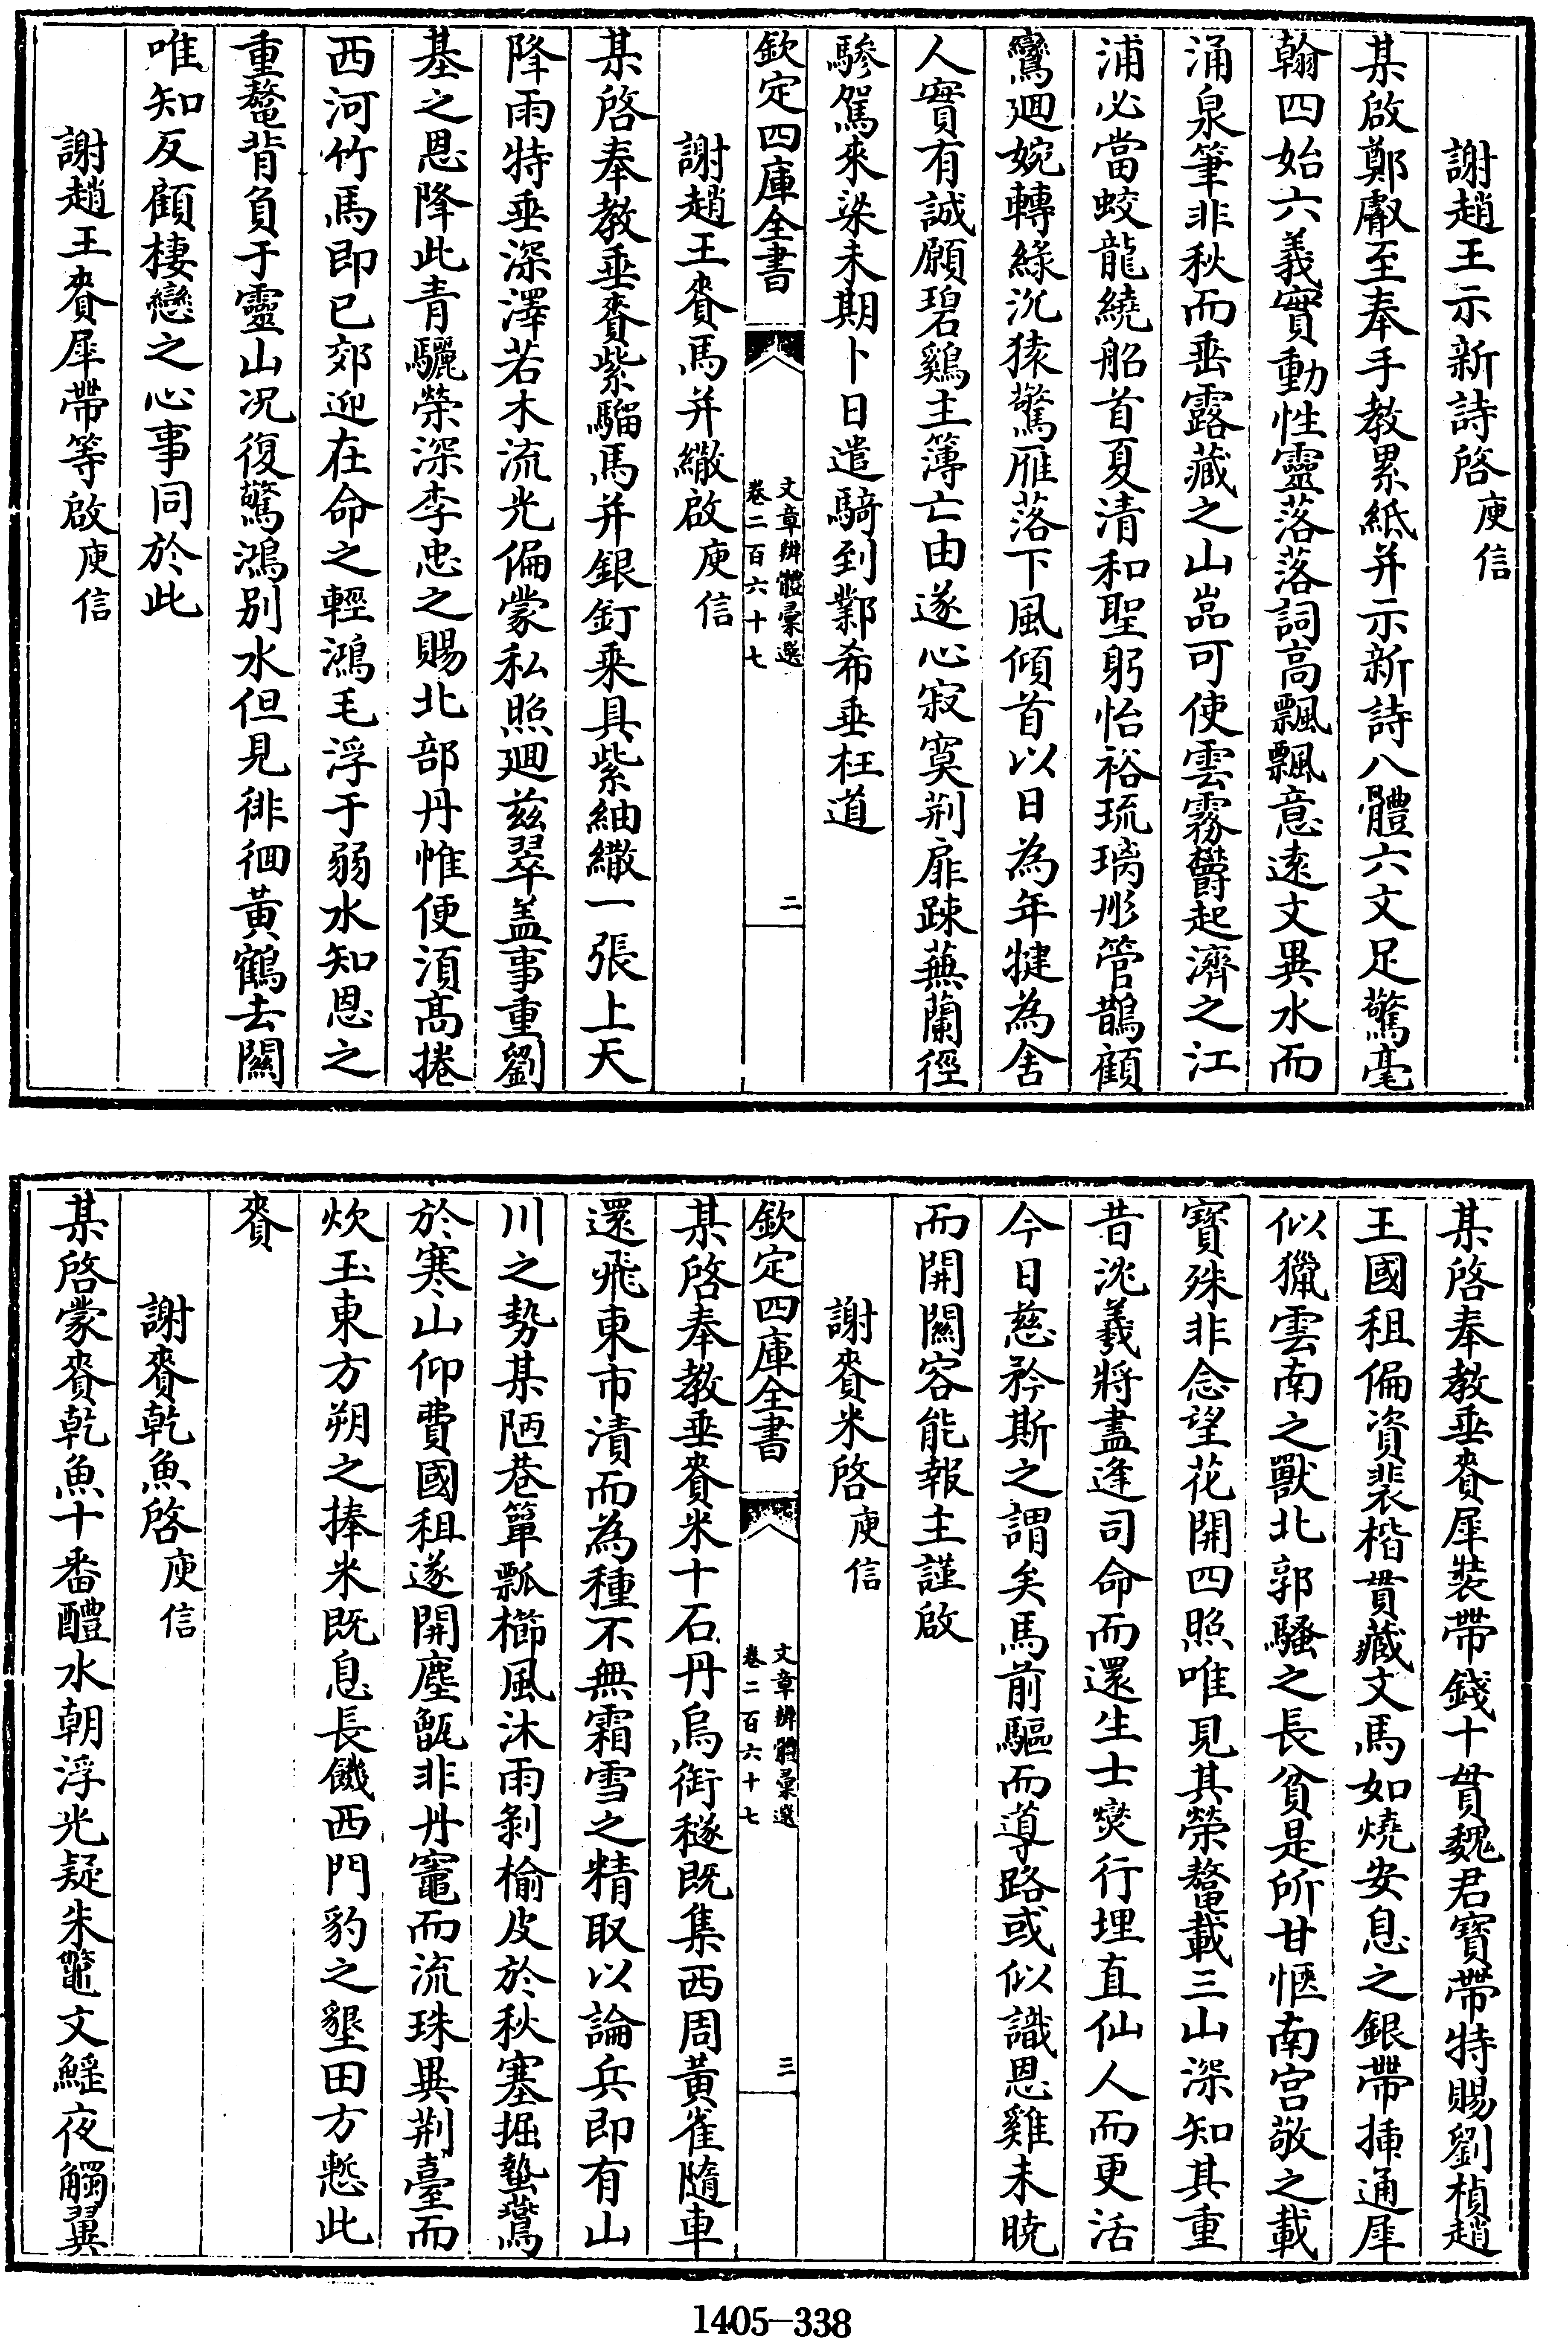 謝趙王示新詩啓庾信
某啟鄭叡至奉手教累紙并示新詩八體六文足驚毫
翰四始六義實動性靈落落詞高飄飄意逺文異水而
涌泉筆非秋而垂露藏之山嵓可使雲霧欝起濟之江
浦必當蛟龍繞船首夏清和聖躬怡裕琉璃彤管鵲顧
鸞廻婉轉緑沉猿驚雁落下風傾首以日為年揵為舍
人實有誠願碧鷄主簿亡由遂心寂寞荆扉踈蕪蘭徑
驂駕來梁未期卜日遣騎到鄴希垂枉道
欽定四庫全書
文章辨體彙選
卷二百六十七
二
謝趙王賚馬并繖啟庾信
某啓奉教垂賚紫騮馬并銀釘乘具紫紬繖一張上天
降雨特垂深澤若木流光偏蒙私照廻兹翠盖事重劉
基之恩降此青驪榮深李忠之賜北部丹帷便須髙捲
西河竹馬即已郊迎在命之輕鴻毛浮于弱水知恩之
重鼇背負于靈山况復驚鴻别水但見徘徊黄鶴去關
唯知反顧棲戀之心事同於此
謝趙王賚犀帶等啟庾信
某啓奉教垂賚犀裝帶錢十貫魏君寶帶特賜劉楨趙
王國租偏資裴楷貫藏文馬如燒安息之銀帶揷通犀
似獵雲南之獸北郭騷之長貧是所甘愜南宫敬之載
寶殊非念望花開四照唯見其榮鼇載三山深知其重
昔沈羲將盡逢司命而還生士燮行埋直仙人而更活
今日慈矜斯之謂矣馬前驅而導路或似識恩雞未曉
而開關容能報主謹啟
謝賚米啓庾信
欽定四庫全書
文章辨體彙選
卷二百六十七
三
某啓奉教垂賚米十石丹烏銜穟既集西周黄雀隨車
還飛東市漬而為種不無霜雪之精取以論兵即有山
川之勢某陋巷簞瓢櫛風沐雨剝榆皮於秋塞掘蟄鷰
於寒山仰費國租遂開塵甑非丹竈而流珠異荆臺而
炊玉東方朔之捧米既息長饑西門豹之墾田方慙此
賚
謝賚乾魚啓庾信
某啓蒙賚乾魚十番醴水朝浮光疑朱鼈文鰩夜觸翼
1405-338